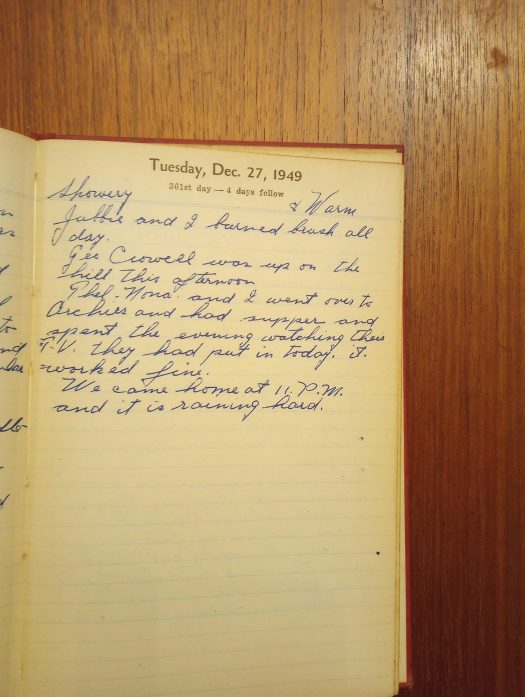 Tuesday, Dec. 27, 1949
361st day — 4 days follow
Showery & Warm
and I burned brush all
day.
Geo Crowell was up on the
hill this afternoon
Phel. Nona. and I went over to
Archies and had supper and
spent the evening watching their
T.V. they had put in today. it.
worked fine.
We came home at 11. P.M.
and it is raining hard.
to